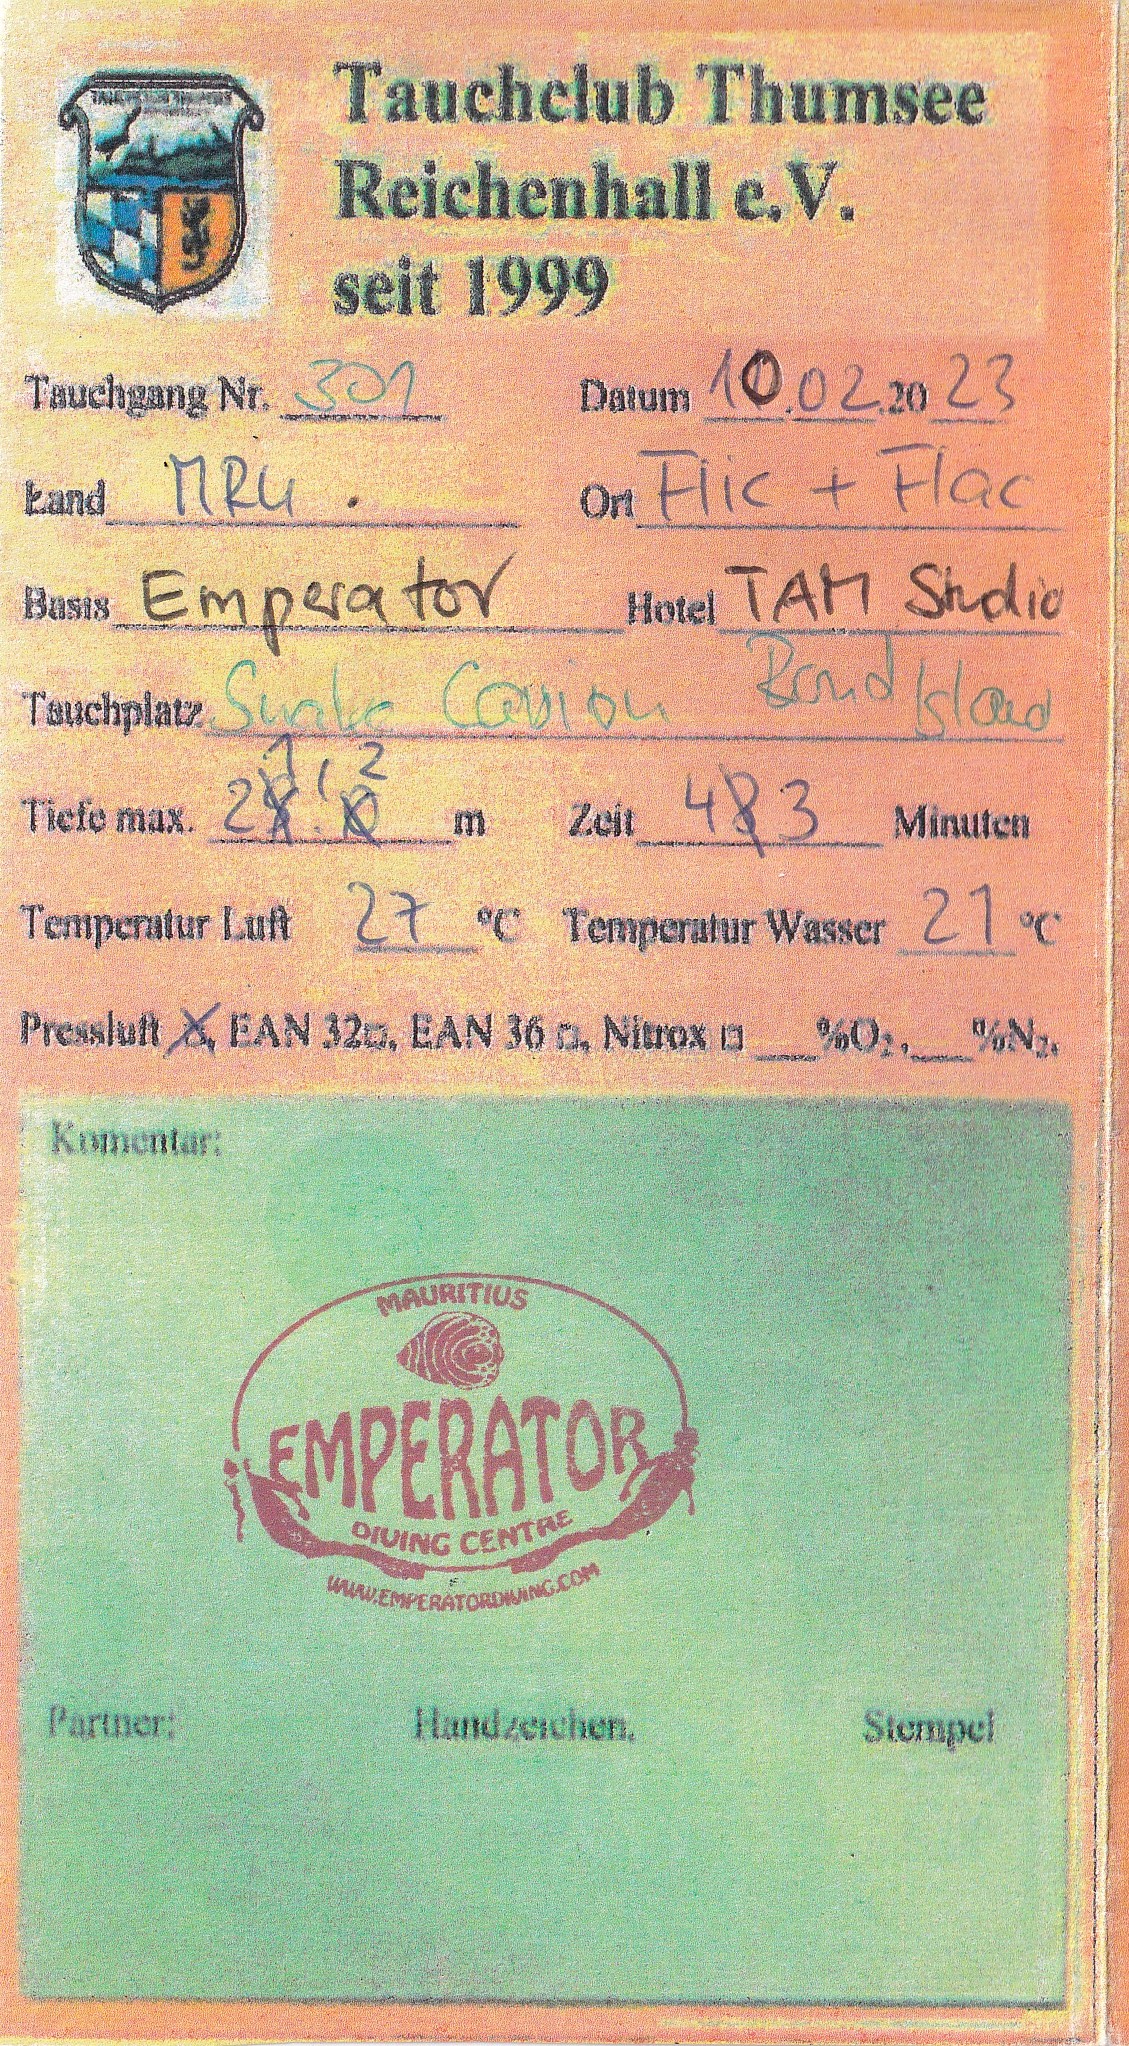 Tauchclub Thumsee
Reichenhall e.V.
seit 1999
Tauchgang Nr. 301 Datum 10.02.2023
Land MRU . Ort Flic + Flac
Basis Emperator Hotel TAM Studio
Tauchplatz Snake Canyon Rond Island
Tiefe max. 21,2 m Zeit 43 Minuten
Temperatur Luft 27 °C Temperatur Wasser 21 °C
Pressluft X, EAN 32□, EAN 36 □, Nitrox □ ___%O2,___%N2.
Komentar:
MAURITIUS
EMPERATOR
DIVING CENTRE
WWW.EMPERATORDIVING.COM
Partner: Handzeichen. Stempel